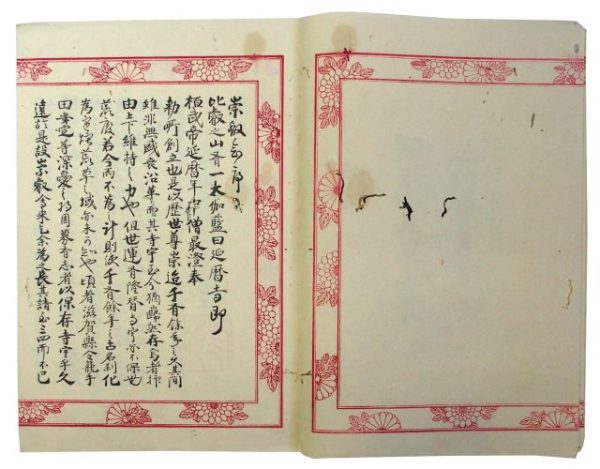 崇叡会
比叡之山有一大伽藍曰延暦寺即
桓武帝延暦年中僧最澄奉
勅所創立也是以歴世尊崇迨千有餘年之久其間
雖非無盛衰沿革而其寺宇至今猶巋然存焉者抑
由上下維持之力也但世運有隆替寺宇亦不保
荒廃若今而不為之計則使千有餘年之古名刹化
為荒草之域亦未可知也頃者滋賀縣令籠手
田安定等深憂之将周募有志者以保存寺宇于久
遠於是設崇叡会来乞余為之長其請至三四而不已